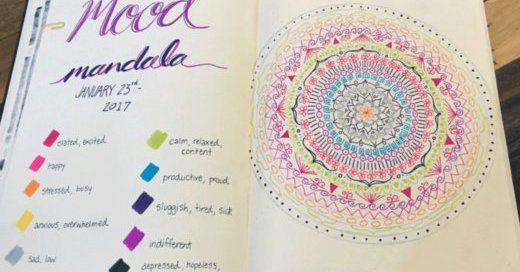 Mood
mandala
JANUARY 23rd-
2017
elated, excited
happy
stressed, busy
anxious, overwhelmed
sad, low
calm, relaxed,
content
productive, proud
sluggish, tired, sick
indifferent
depressed, hopeless,